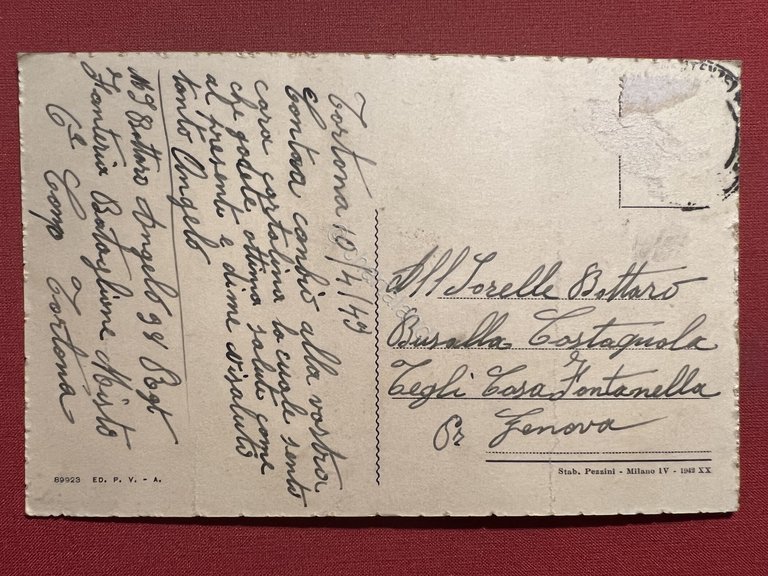 Tortona 10/4/43
Contraca cambio alla vostra
cara cartolina la cuale sento
che godete ottima salute come
al presente e di me vi saluto
tanto Angelo
Bottaro Angelo 98 Regt
Fanteria Bataglione Misto
6ª Comp Tortona
All Sorelle Bottaro
Busalla Costagnola
Tegli Casa Fontanella
Pr Genova
89923 ED. P. V. - A.
Stab. Pezzini - Milano IV - 1942 XX